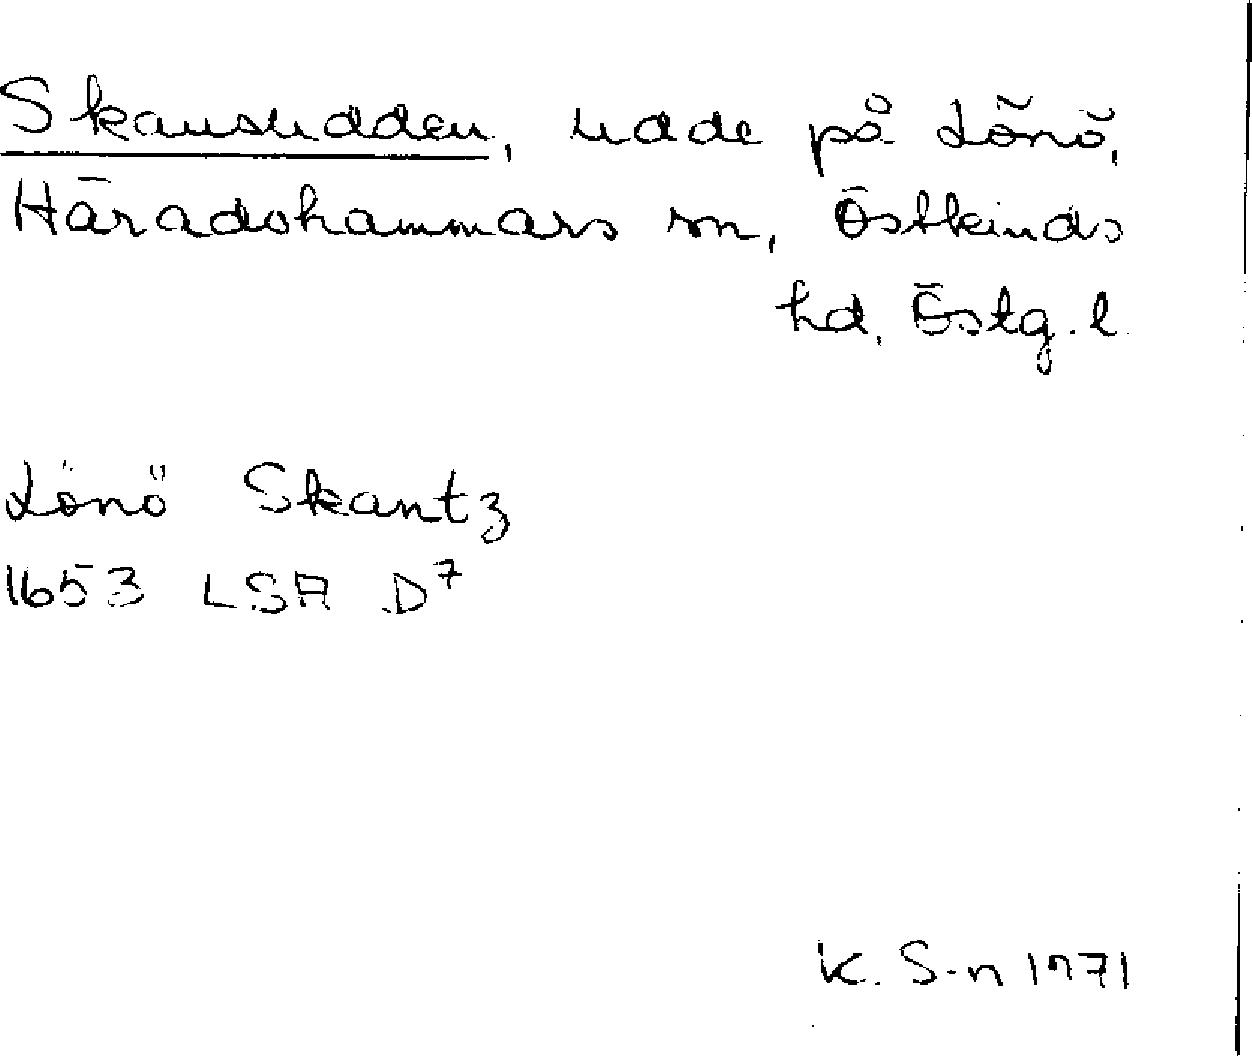 Skansudden, udde på Lönö,
Häradshammars sn, Östkinds
hd, Östg. l.
Lönö Skantz
1653 LSA D⁷
K. S-n 1971